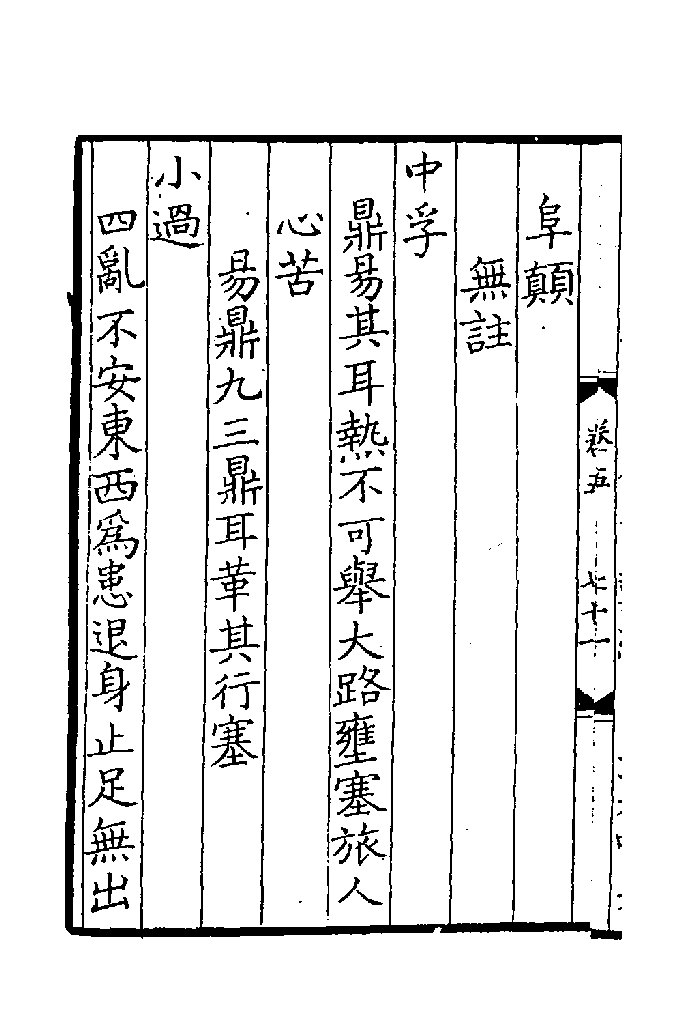 卷五
七十一
阜顛
無註
中孚
鼎昜其耳熱不可舉大路壅塞旅人
心苦
昜鼎九三鼎耳革其行塞
小過
四亂不安東西為患退身止足無出